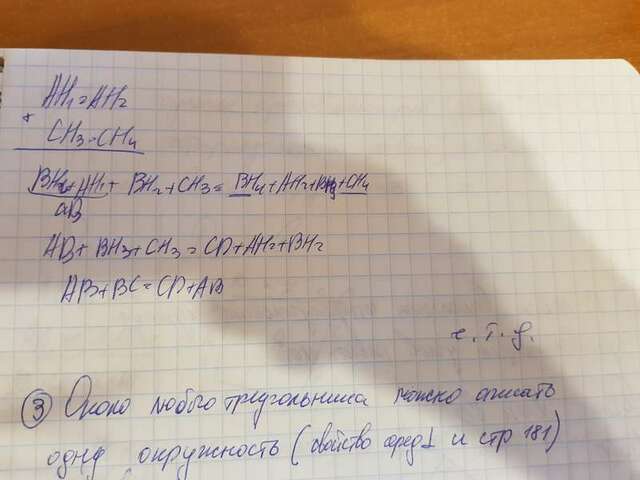 AH₁=AH₂
+
CH₃=CH₄
BH₁+AH₁+ BH₂+CH₃= BH₄+AH₂+ +CH₄
AB
AB+ BH₃+CH₃ = CD+AH₂+BH₂
AB+BC=CD+AB
ч.т.д.
③ Около любого треугольника можно описать
одну окружность (свойство сред⊥ и стр 181)